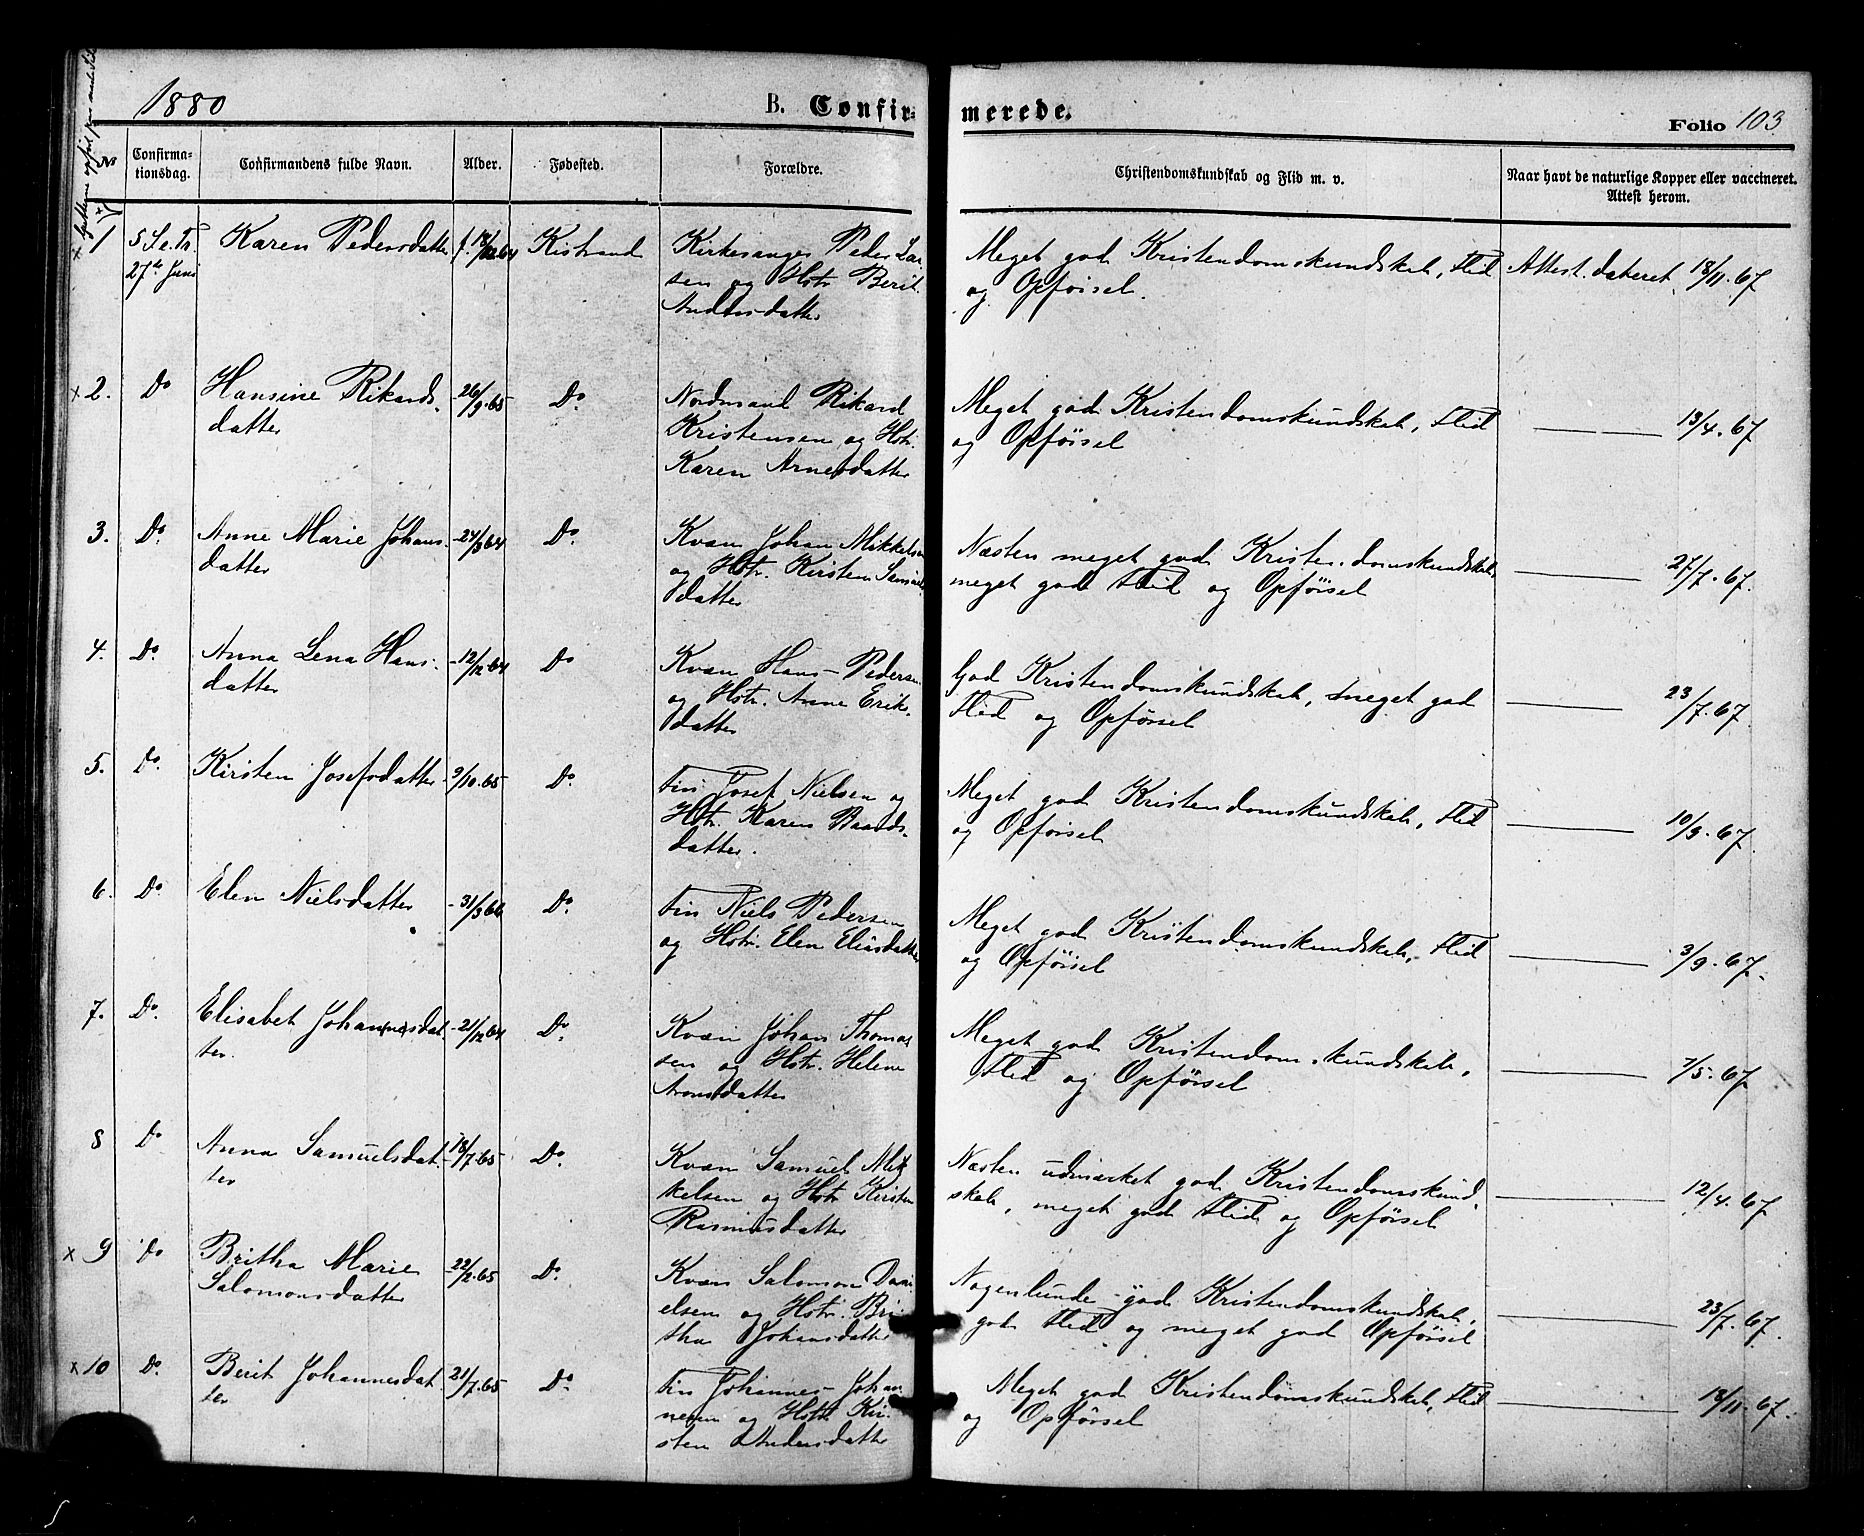 1880
B. Confir-
merede.
Folio 103
№
Confirma-
tionsdag.
Confirmandens fulde Navn.
Alder.
Fødested.
Forældre.
Christendomskundskab og Flid m. v.
Naar havt de naturlige Kopper eller vaccineret.
Attest herom.
x 1
5 S. e. Tr.
27de Juni
Karen Pedersdatter
f. 18/12 64
Kistrand
Kirkesanger Peder Lar
sen og Hstr Berit
Andersdatter
Meget god Kristendomskundskab, Flid
og Opførsel.
Attest dateret 18/11.67
x 2.
Do
Hansine Rikards-
datter
26/9.65
Do.
Nordmand Rikard
Kristensen og Hstr.
Karen Arnesdatter
Meget god Kristendomskundskab, Flid
og Opførsel
13/4.67
3.
Do.
Anne Marie Johans-
datter
-24/3 64
Do.
Kvæn Johan Mikkelsen
og Hstr. Kirsten Samuels
datter
Næsten meget god Kristendomskundskab,
meget god Flid og Opførsel
27/7.67.
4.
Do.
Anna Lena Hans-
datter
-12/12.64
Do
Kvæn Hans Pedersen
og Hstr. Anne Erik-
datter
God Kristendomskundskab, meget god
Flid og Opførsel
23/7.67.
5.
Do.
Kirsten Josefsdatter
9/10.65
Do.
Fin Josef Nielsen og
Hstr. Karen Baards-
datter.
Meget god Kristendomskundskab, Flid
og Opførsel
10/9.67.
6.
Do.
Elen Nielsdatter
-31/3 66
Do.
Fin Niels Pedersen
og Hstr. Elen Eliasdatter
Meget god Kristendomskundskab, Flid
og Opførsel
3/9.67.
7.
Do.
Elisabet Johan(ne)sdat-
ter.
-21/12 64
Do.
Kvæn Johan Thomas
sen og Hstr. Helene
Aronsdatter
Meget god Kristendomskundskab,
Flid og Opførsel
7/5.67
8
Do
Anna Samuelsdat-
ter
18/7.65
Do.
Kvæn Samuel Mik
kelsen og Hstr Kirsten
Rasmusdatter
Næsten udmærket god Kristendomskund-
skab, meget god Flid og Opførsel
12/4.67
x 9
Do
Britha Marie
Salomonsdatter
22/2.65
Do.
Kvæn Salomon Dani
elsen og Hstr. Bri-
tha Johansdatter
Nogenlunde god Kristendomskundskab,
god Flid og meget god Opførsel
23/7.67.
x 10
Do.
Berit Johannesdat-
ter
21/7.65
Do.
Fin Johannes Johan
nesen og Hstr Kir-
sten Andersdatter
Meget god Kristendomskundskab, Flid
og Opførsel
18/11.67.